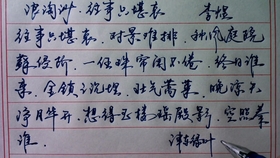 浪淘沙·往事只堪哀 李煜
往事只堪哀，对景难排。秋风庭院
藓侵阶。一任珠帘闲不卷，终日谁
来。金锁已沉埋，壮气蒿莱。晚凉天
净月华开。想得玉楼瑶殿影，空照秦
淮。